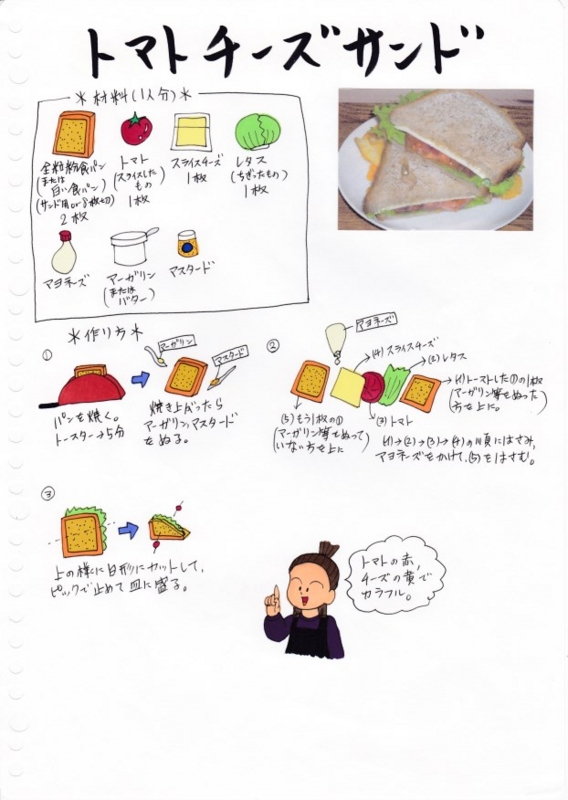 トマトチーズサンド
＊材料(1人分)＊
全粒粉食パン
(または
白い食パン)
(サンド用or8枚切)
2枚
トマト
(スライスした
もの)
1枚
スライスチーズ
1枚
レタス
(ちぎったもの)
1枚
マヨネーズ
マーガリン
(または
バター)
マスタード
＊作り方＊
①
マーガリン
マスタード
パンを焼く。
トースター→5分
焼き上がったら
マーガリン、マスタード
をぬる。
②
マヨネーズ
(4)スライスチーズ
(2)レタス
(1)トーストした①の1枚
(マーガリン等をぬった
方を上に)
(3)トマト
(5)もう1枚の①
(マーガリン等をぬって
いない方を上に)
(1)→(2)→(3)→(4)の順にはさみ、
マヨネーズをかけて、(5)をはさむ。
③
上の様に
カットして、
ピックで止めて皿に盛る。
トマトの赤、
チーズの黄で
カラフル。